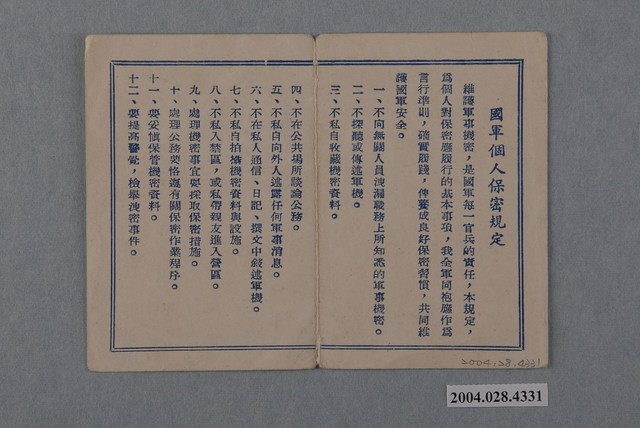 國軍個人保密規定
維護軍事機密，是國軍每一官兵的責任，本規定，
為個人對保密應履行的基本事項，我全軍同袍應作為
言行準則，確實履踐，俾養成良好保密習慣，共同維
護國軍安全。
一、不向無關人員洩漏職務上所知悉的軍事機密。
二、不探聽或傳述軍機。
三、不私自收藏機密資料。
四、不在公共場所談論公務。
五、不私自向外人述露任何軍事消息。
六、不在私人通信、日記、撰文中敍述軍機。
七、不私自拍攝機密資料與設施。
八、不私入禁區，或私帶親友進入營區。
九、處理機密事宜要採取保密措施。
十、處理公務要恪遵有關保密作業程序。
十一、要妥慎保管機密資料。
十二、要提高警覺，檢舉洩密事件。
2004.28.4331
2004.028.4331